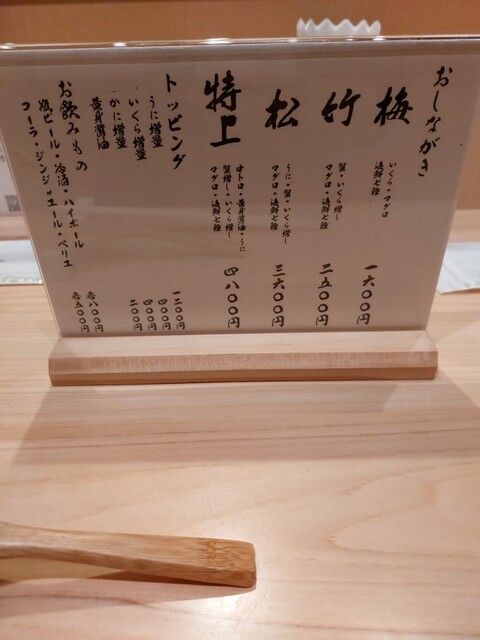 おしながき
梅
いくら・マグロ
海鮮七種
一六〇〇円
竹
蟹・いくら増し
マグロ・海鮮七種
二五〇〇円
松
うに・蟹・いくら増し
マグロ・海鮮七種
三六〇〇円
特上
中トロ・黄身醤油・うに
蟹増し・いくら増し
マグロ・海鮮七種
四八〇〇円
トッピング
うに増量
一二〇〇円
いくら増量
四〇〇円
かに増量
四〇〇円
黄身醤油
二〇〇円
お飲みもの
瓶ビール・冷酒・ハイボール
各八〇〇円
コーラ・ジンジャエール・ペリエ
各五〇〇円